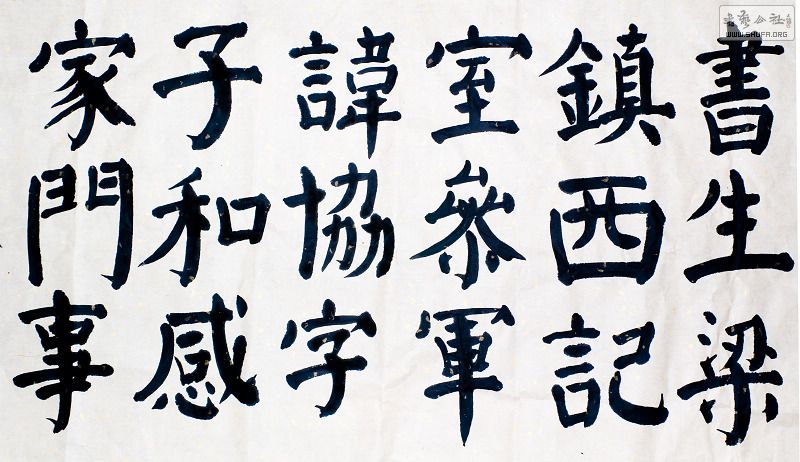 書生梁
鎮西記
室參軍
諱協字
子和感
家門事
书艺公社
WWW.SHUFA.ORG